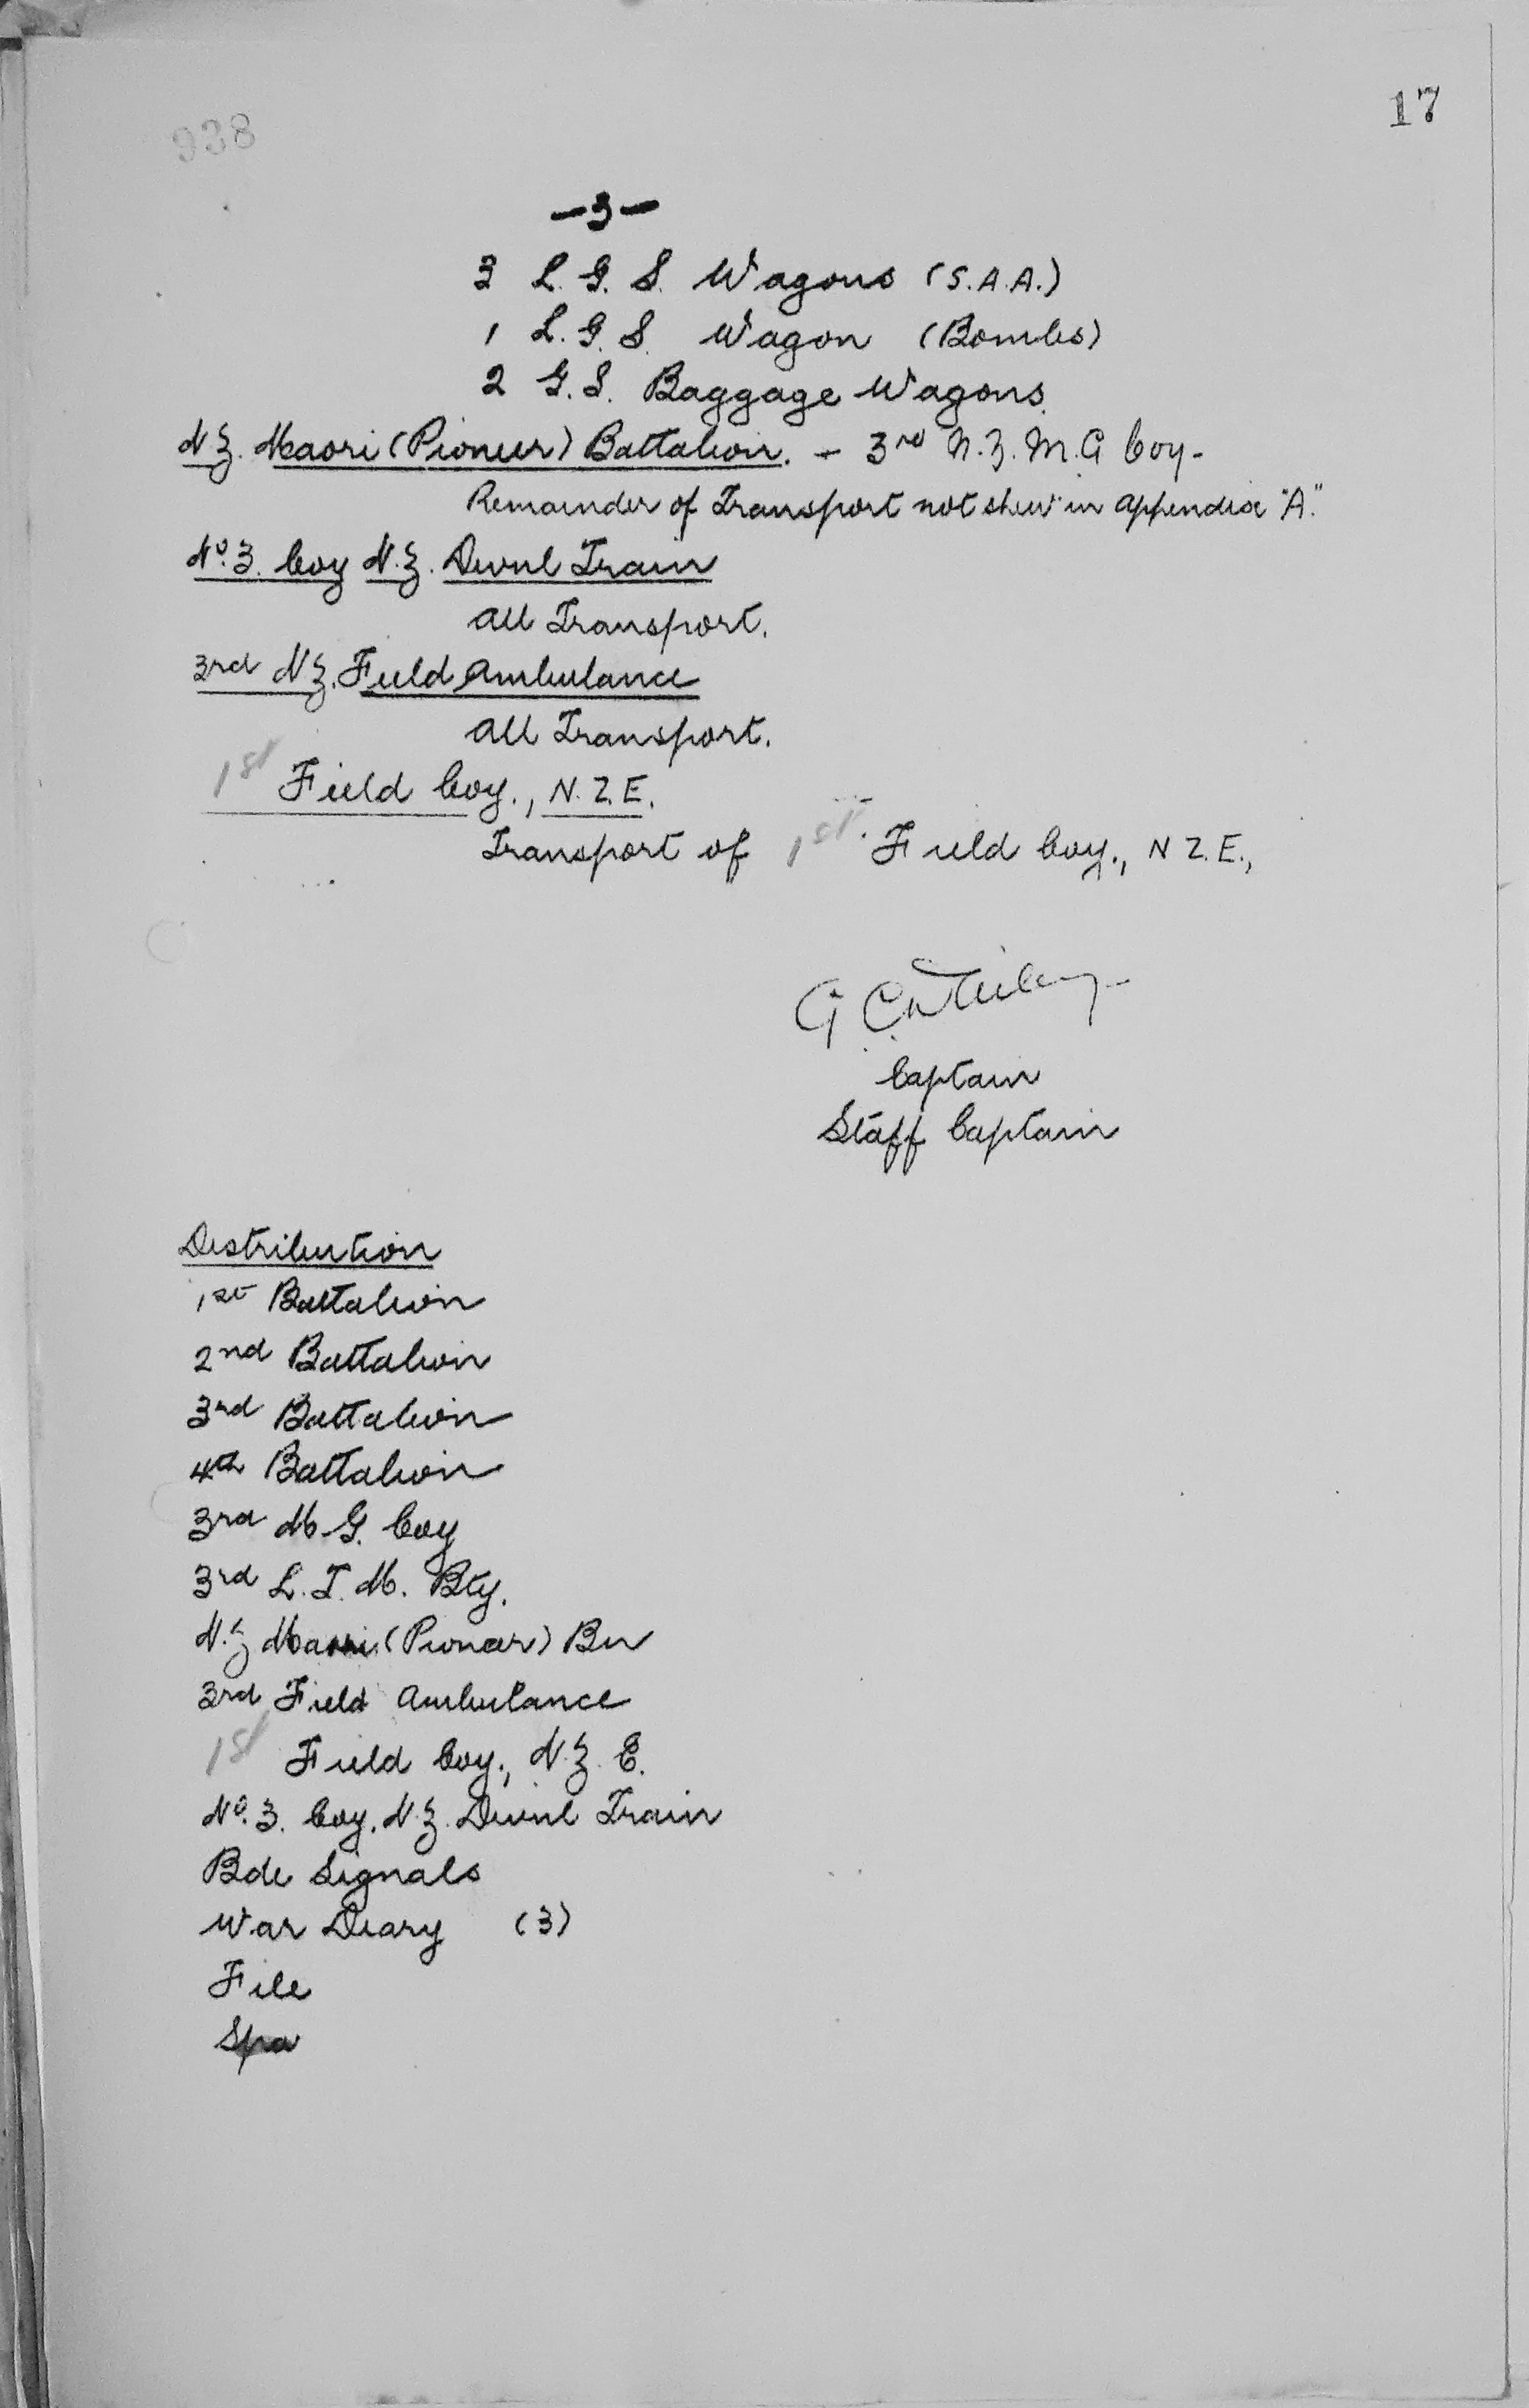 938
17
-3-
3 L.G.S. Wagons (S.A.A.)
1 L.G.S. Wagon (Bombs)
2 G.S. Baggage Wagons.
N.Z. Maori (Pioneer) Battalion. - 3rd N.Z.M.G Coy-
Remainder of Transport not shewn in appendix "A."
No. 3. Coy N.Z. Divnl Train
All Transport.
3rd N.Z. Field Ambulance
All Transport.
1st Field Coy., N.Z.E.
Transport of 1st Field Coy., N.Z.E.,
Captain
Staff Captain
Distribution
1st Battalion
2nd Battalion
3rd Battalion
4th Battalion
3rd M.G. Coy
3rd L.T.M. Bty.
N.Z Maori (Pioneer) Bn
3rd Field Ambulance
1st Field Coy., N.Z.E.
No. 3. Coy. N.Z. Divnl Train
Bde Signals
War Diary (3)
File